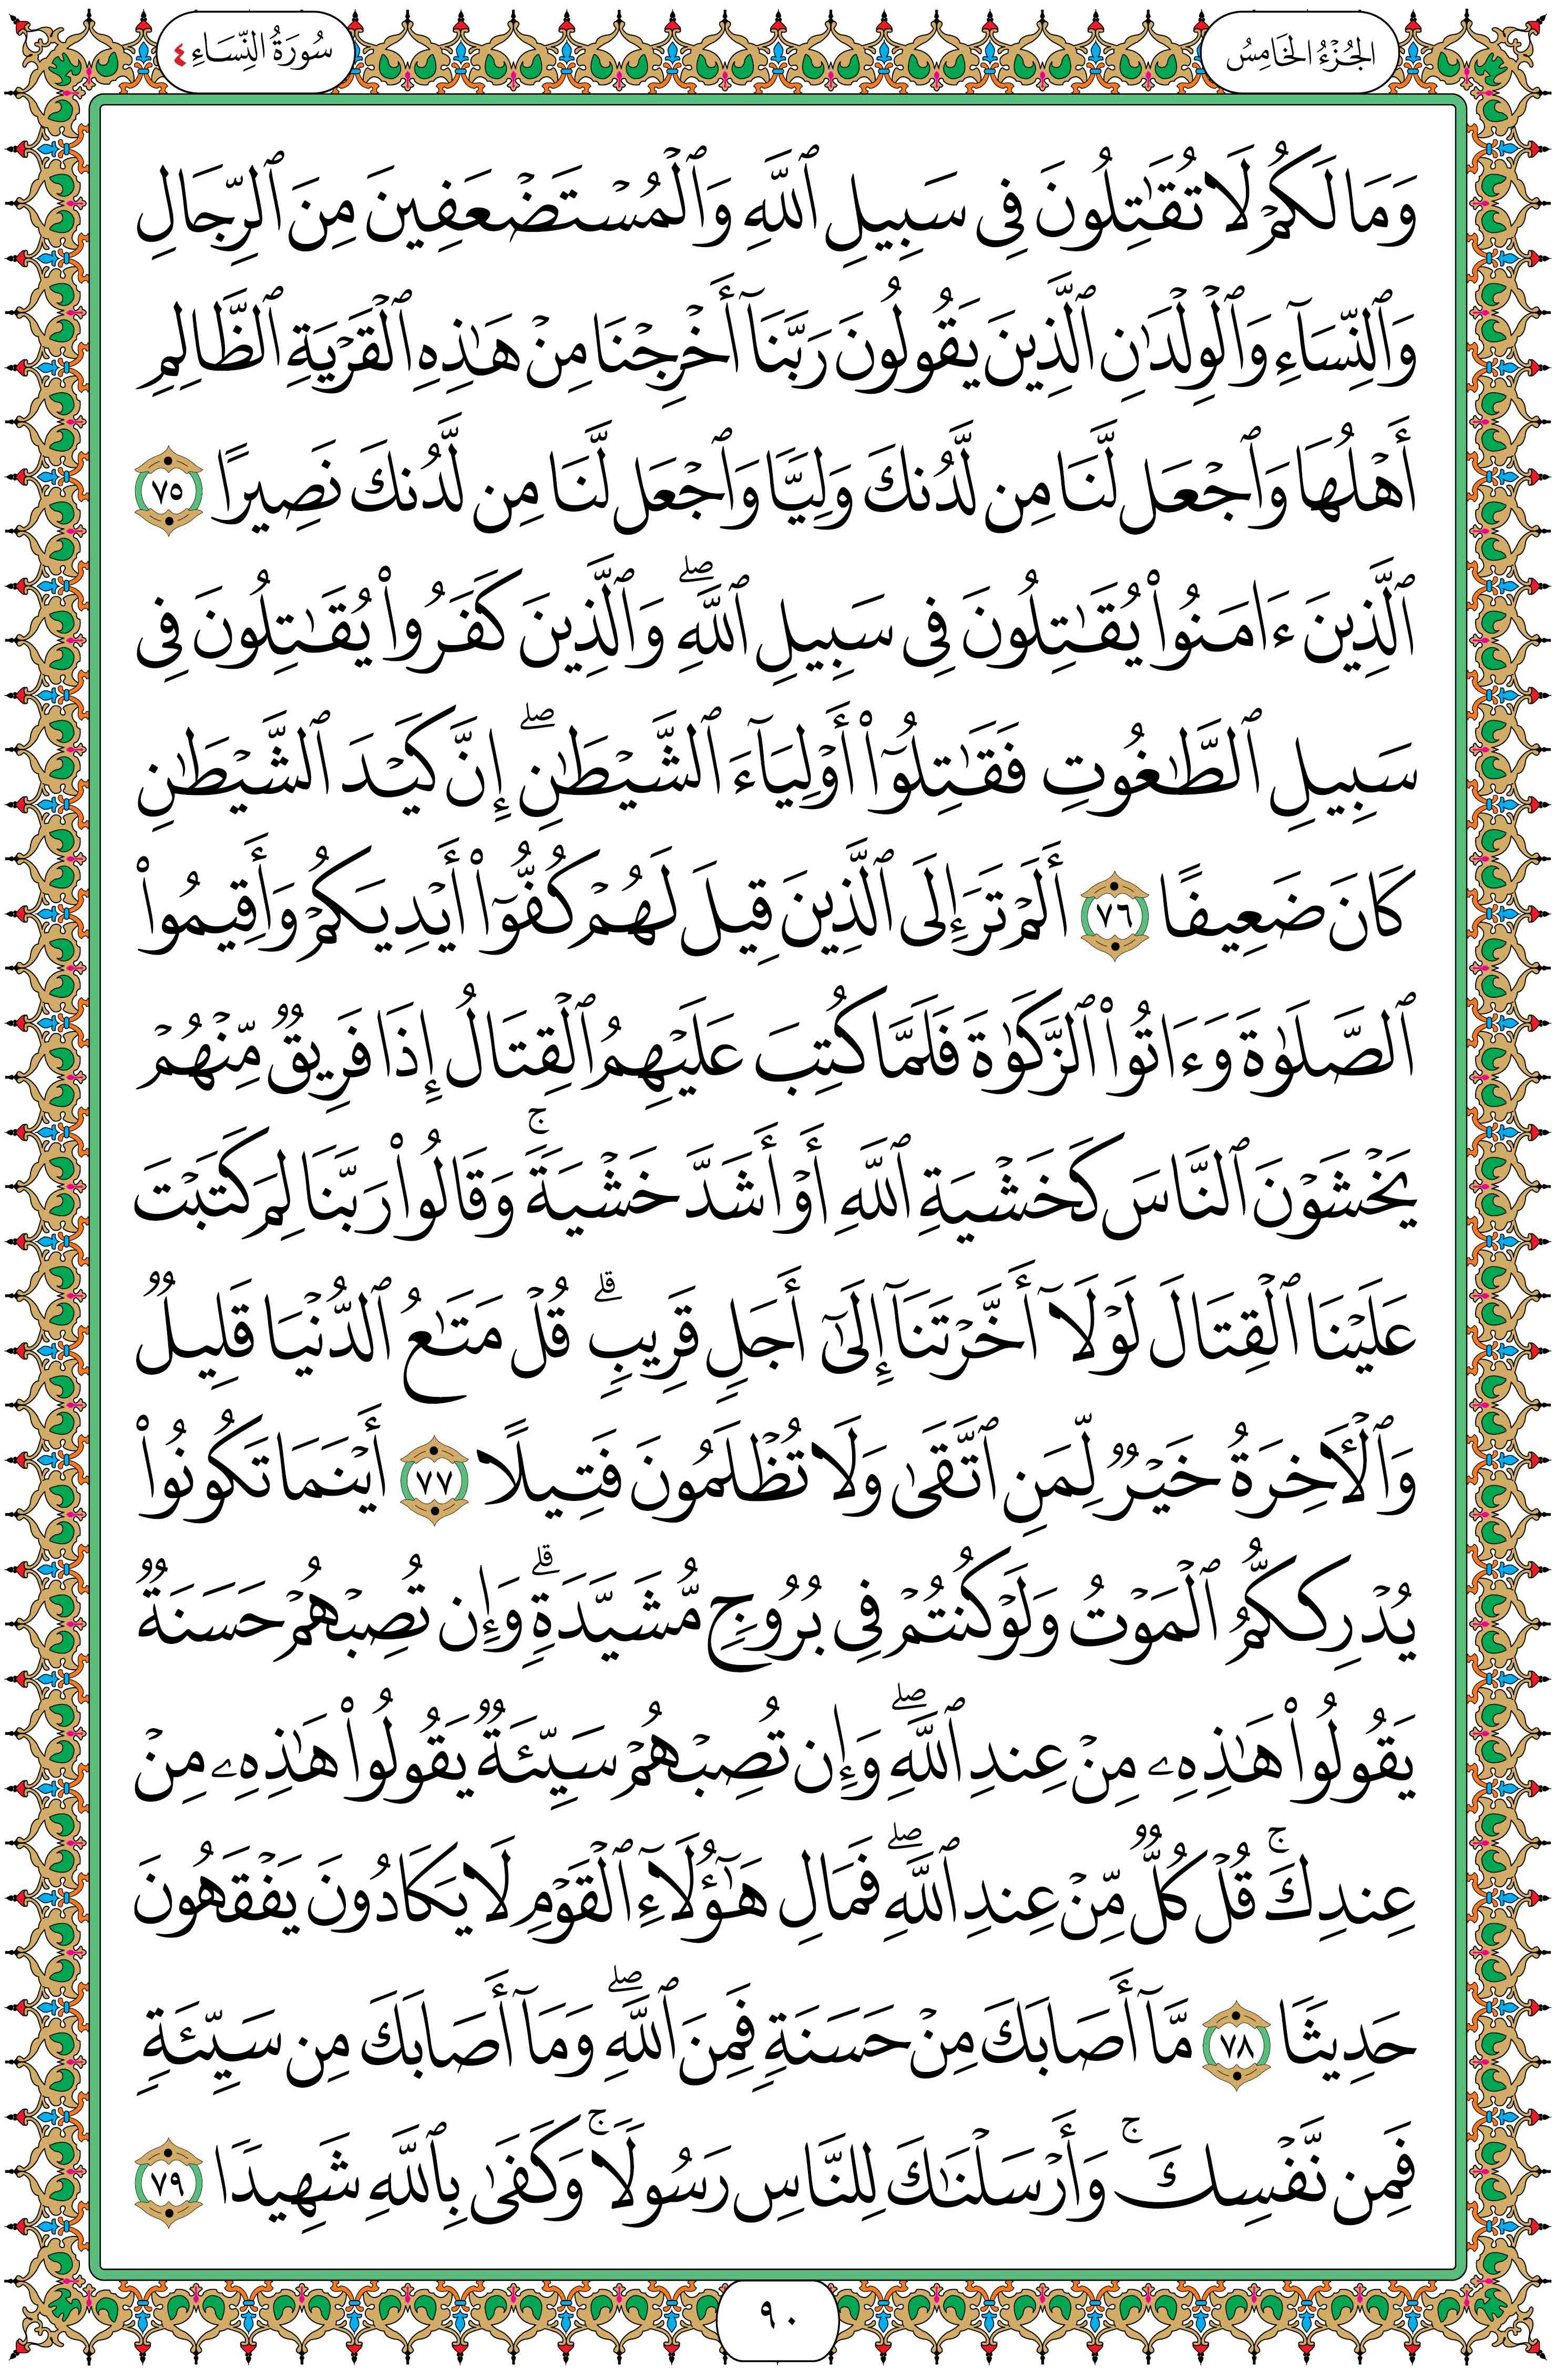 الجُزْءُ الخَامِسُ
سُورَةُ النِّسَاءِ ٤
وَمَا لَكُمْ لَا تُقَٰتِلُونَ فِى سَبِيلِ ٱللَّهِ وَٱلْمُسْتَضْعَفِينَ مِنَ ٱلرِّجَالِ
وَٱلنِّسَآءِ وَٱلْوِلْدَٰنِ ٱلَّذِينَ يَقُولُونَ رَبَّنَآ أَخْرِجْنَا مِنْ هَٰذِهِ ٱلْقَرْيَةِ ٱلظَّالِمِ
أَهْلُهَا وَٱجْعَل لَّنَا مِن لَّدُنكَ وَلِيًّا وَٱجْعَل لَّنَا مِن لَّدُنكَ نَصِيرًا ٧٥
ٱلَّذِينَ ءَامَنُوا۟ يُقَٰتِلُونَ فِى سَبِيلِ ٱللَّهِ ۖ وَٱلَّذِينَ كَفَرُوا۟ يُقَٰتِلُونَ فِى
سَبِيلِ ٱلطَّٰغُوتِ فَقَٰتِلُوٓا۟ أَوْلِيَآءَ ٱلشَّيْطَٰنِ ۖ إِنَّ كَيْدَ ٱلشَّيْطَٰنِ
كَانَ ضَعِيفًا ٧٦ أَلَمْ تَرَ إِلَى ٱلَّذِينَ قِيلَ لَهُمْ كُفُّوٓا۟ أَيْدِيَكُمْ وَأَقِيمُوا۟
ٱلصَّلَوٰةَ وَءَاتُوا۟ ٱلزَّكَوٰةَ فَلَمَّا كُتِبَ عَلَيْهِمُ ٱلْقِتَالُ إِذَا فَرِيقٌ مِّنْهُمْ
يَخْشَوْنَ ٱلنَّاسَ كَخَشْيَةِ ٱللَّهِ أَوْ أَشَدَّ خَشْيَةً ۚ وَقَالُوا۟ رَبَّنَا لِمَ كَتَبْتَ
عَلَيْنَا ٱلْقِتَالَ لَوْلَآ أَخَّرْتَنَآ إِلَىٰٓ أَجَلٍ قَرِيبٍ ۗ قُلْ مَتَٰعُ ٱلدُّنْيَا قَلِيلٌ
وَٱلْـَٔاخِرَةُ خَيْرٌ لِّمَنِ ٱتَّقَىٰ وَلَا تُظْلَمُونَ فَتِيلًا ٧٧ أَيْنَمَا تَكُونُوا۟
يُدْرِككُّمُ ٱلْمَوْتُ وَلَوْ كُنتُمْ فِى بُرُوجٍ مُّشَيَّدَةٍ ۗ وَإِن تُصِبْهُمْ حَسَنَةٌ
يَقُولُوا۟ هَٰذِهِۦ مِنْ عِندِ ٱللَّهِ ۖ وَإِن تُصِبْهُمْ سَيِّئَةٌ يَقُولُوا۟ هَٰذِهِۦ مِنْ
عِندِكَ ۚ قُلْ كُلٌّ مِّنْ عِندِ ٱللَّهِ ۖ فَمَالِ هَٰٓؤُلَآءِ ٱلْقَوْمِ لَا يَكَادُونَ يَفْقَهُونَ
حَدِيثًا ٧٨ مَّآ أَصَابَكَ مِنْ حَسَنَةٍ فَمِنَ ٱللَّهِ ۖ وَمَآ أَصَابَكَ مِن سَيِّئَةٍ
فَمِن نَّفْسِكَ ۚ وَأَرْسَلْنَٰكَ لِلنَّاسِ رَسُولًا ۚ وَكَفَىٰ بِٱللَّهِ شَهِيدًا ٧٩
٩٠